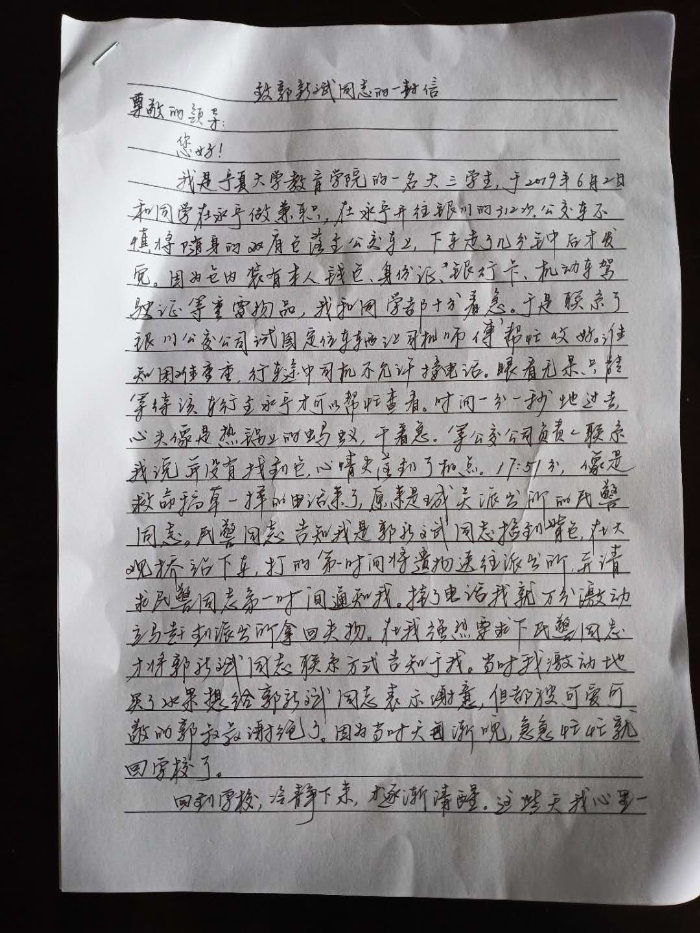 致郭新斌同志的一封信
尊敬的领导:
您好!
我是宁夏大学教育学院的一名大三学生,于2019年6月2日
和同学在永宁做兼职,在永宁开往银川的312次公交车不
慎将随身的双肩包落至公交车上,下车走了几分钟后才发
觉。因为包内装有本人钱包、身份证、银行卡、机动车驾
驶证等重要物品,我和同学都十分着急。于是联系了
银川公交公司试图定位车辆让司机师傅帮忙收好。谁
知困难重重,行车途中司机不允许接电话。眼看无果,只能
等待该车行至永宁才可以帮忙查看。时间一分一秒地过去,
心头像是热锅上的蚂蚁,干着急。等公交公司负责人联系
我说并没有找到包,心情失落到了极点。17:51分,像是
救命稻草一样的电话来了,原来是城关派出所的民警
同志。民警同志告知我是郭新斌同志捡到背包,在大
观桥站下车,打的第一时间将遗物送往派出所,并请
求民警同志第一时间通知我。接了电话我就万分激动
立马赶到派出所拿回失物。在我强烈要求下民警同志
才将郭新斌同志联系方式告知于我。当时我激动地
买了水果想给郭新斌同志表示谢意,但都被可爱可
敬的郭叔叔谢绝了。因为当时天色渐晚,急急忙忙就
回学校了。
回到学校,冷静下来,才逐渐清醒。这些天我心里一